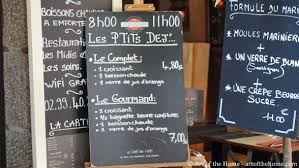 BOISSONS CHAUDES
A EMPORTER
Restauration
Les Midis et
soirs
wifi GRATUIT
LA CARTE
8h00 11h00
LES P'TITS DEJ'..
Le Complet:
• 1 croissant
• 1 boisson chaude
• 1 verre de jus d'orange
4,80€
Le Gourmand:
• 1 croissant
• 1/4 baguette beurre confitures
• 1 boisson chaude
• 1 verre de jus d'orange
7,00€
FORMULE DU
MOULES MARINIERES
+
UN VERRE DE BLANC
+
UNE CREPE BEURRE
SUCRE
Art of the Home - artofthehome.com